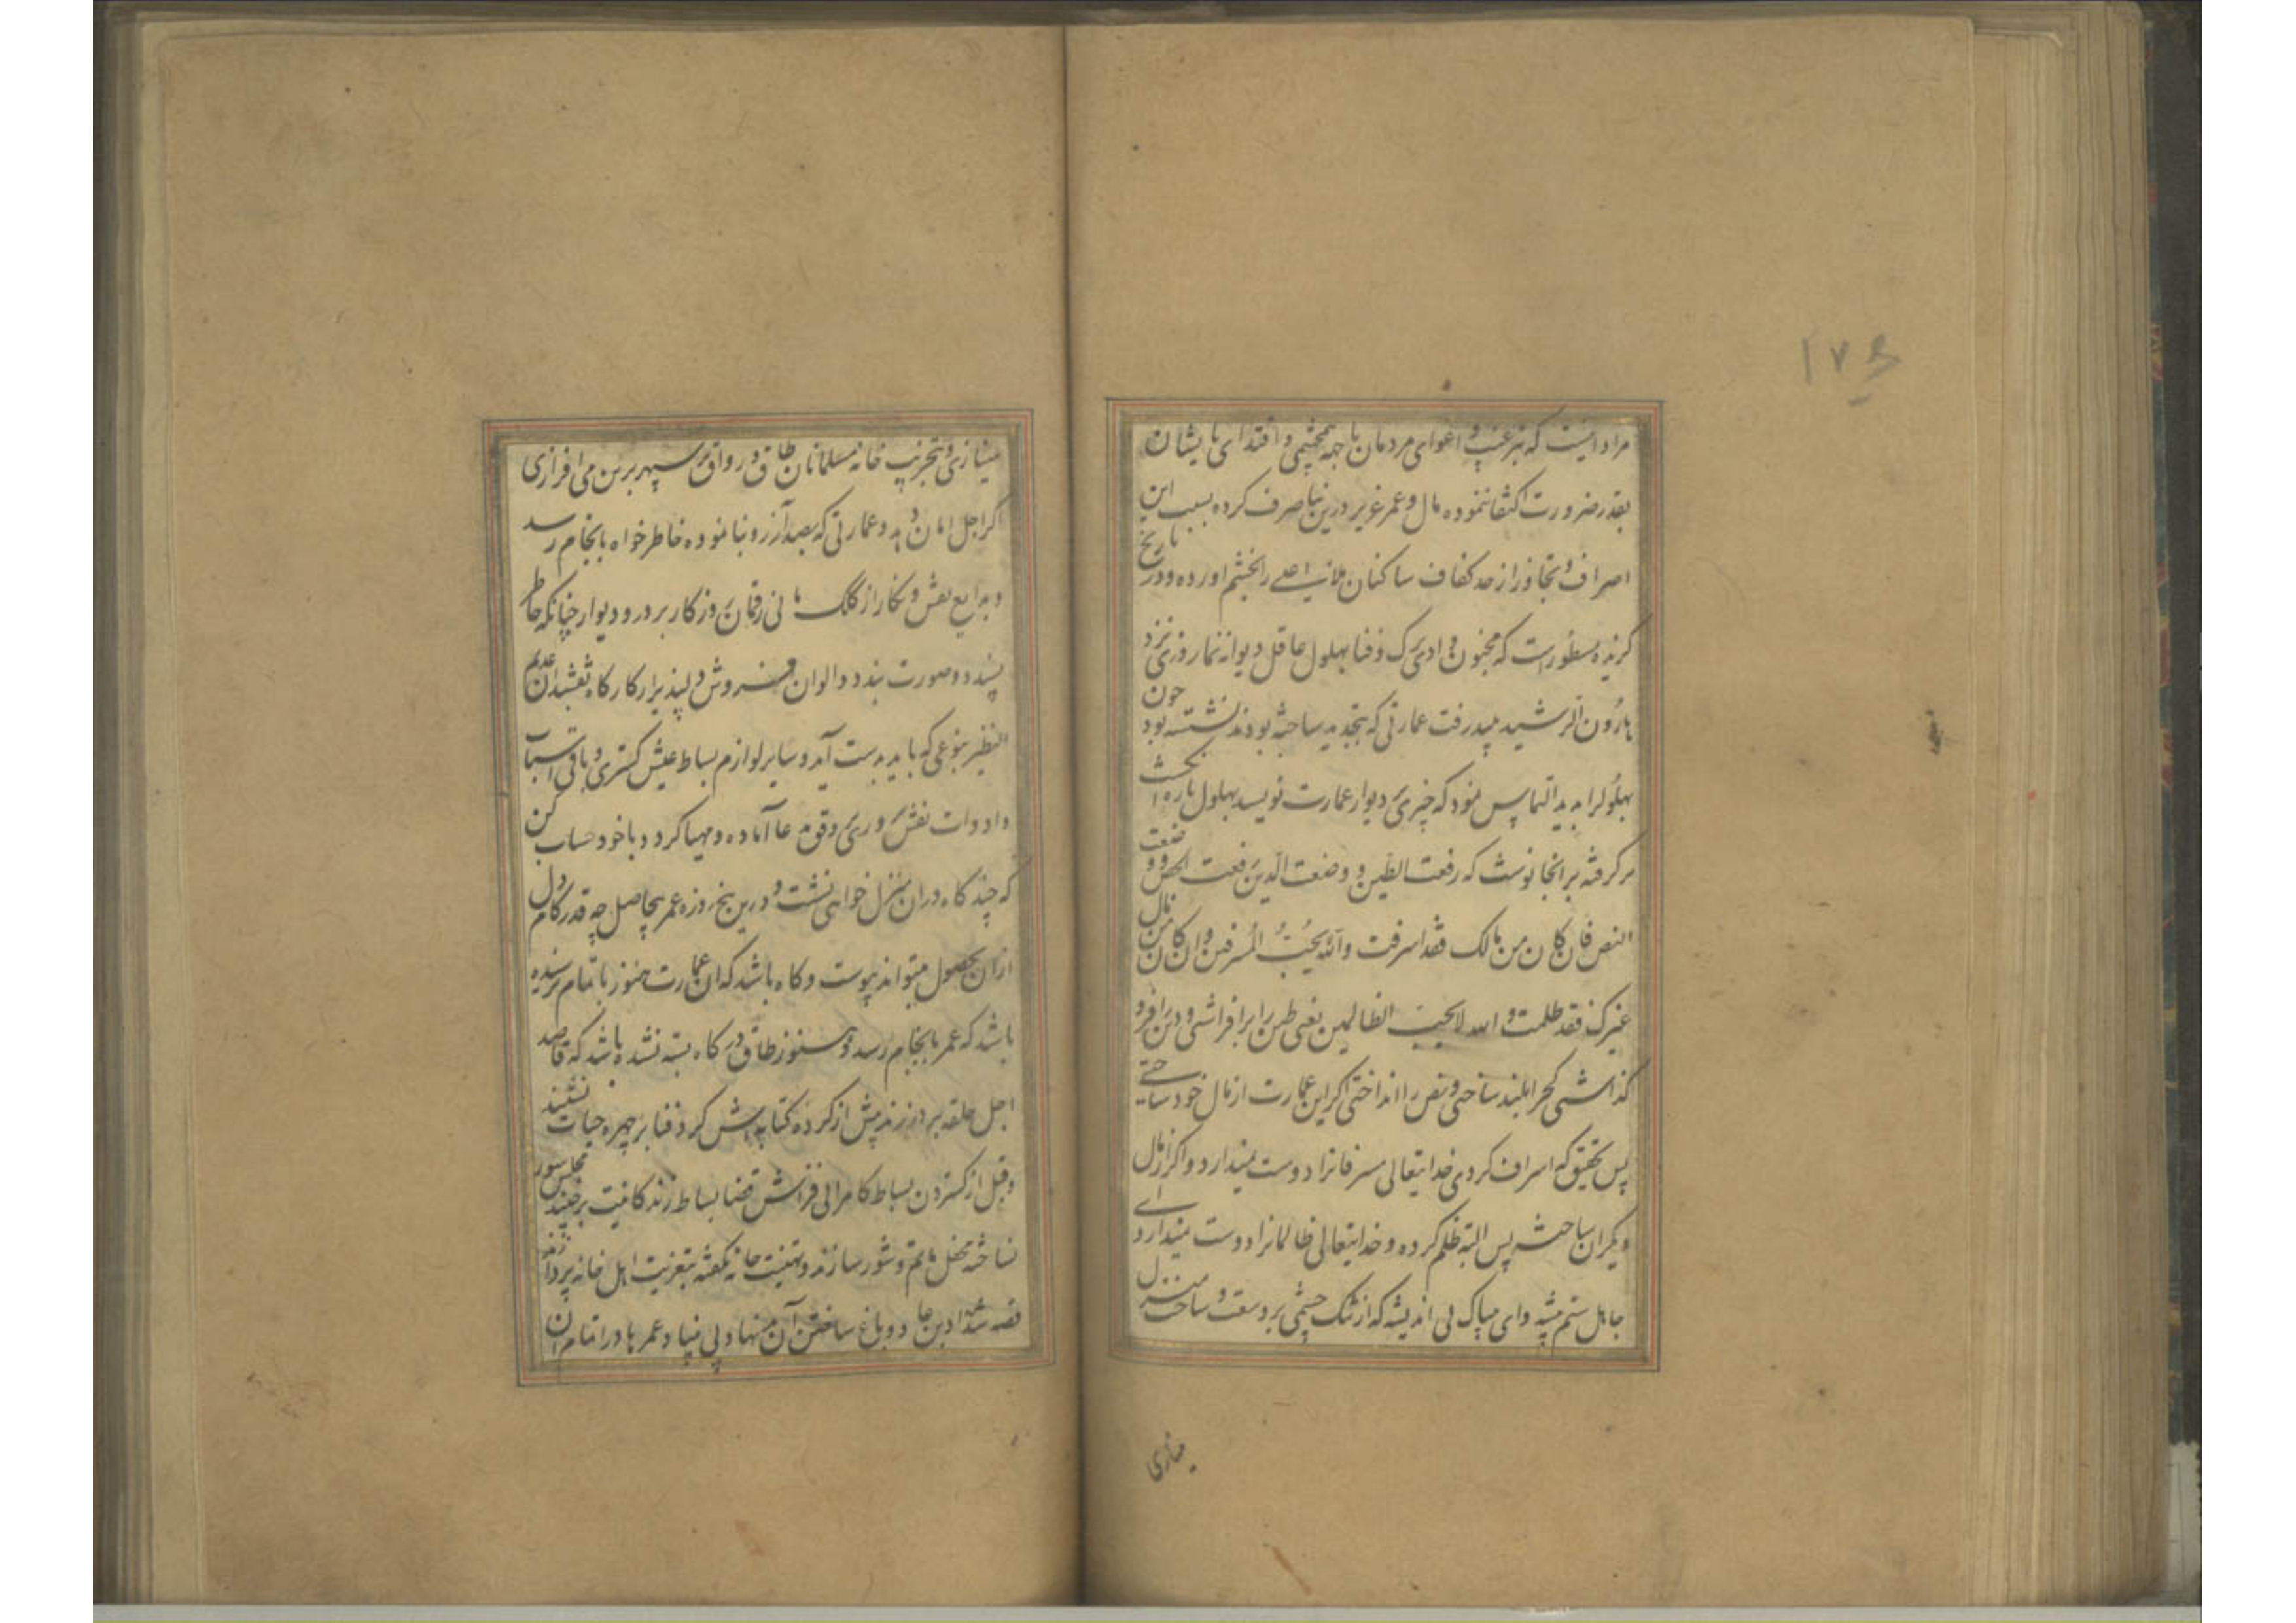 ۱۷۶
مراد اینست که بترغیب و اغوای مردمان با جمه همچشمی و اقتدای بایشان
بقدر ضرورت اکتفا ننموده مال و عمر عزیز درین بنا صرف کرده بسبب این
اصراف و تجاوز از حد کفاف ساکنان ملاء اعلی را بخشم اورده و در تاریخ
گزیده مسطور است که مجنون وادی ترک و فنا بهلول عاقل دیوانه نما روزی نزد
هارون الرشید میرفت عمارتی که بتجدید ساخته بودند نشسته بود چون
بهلول را بدید التماس نمود که چیزی بر دیوار عمارت نویسد بهلول پاره انکشت
بر گرفته بر انجا نوشت که رفعت الطین و وضعت الدین رفعت الجص و وضعت
النص فان کان من مالک فقد اسرفت والله یحب المسرفین و ان کان من مال
غیرک فقد ظلمت و الله لا یحب الظالمین یعنی طین را برافراشتی و دین را فرو
کذاشتی کج را بلند ساختی و نص را انداختی اکر این عمارت از مال خود ساختی
پس بتحقیق که اسراف کردی خدایتعالی مسرفانرا دوست نمیدارد و اکر از مال
دیکران ساخته پس البته ظلم کرده و خدایتعالی ظالمانرا دوست نمیدارد ای
جاهل ستم پیشه و ای بیباک بی اندیشه که از تنک چشمی بر وسعت و ساحت منزل
مینازی
مینازی و بتخریب خانه مسلمانان طاق و رواق بر سپهر برین می افرازی
اکر اجل امان دهد و عمارتی که بصد آرزو بنا نموده خاطر خواه بانجام رسد
و بدایع نقش و نکار از کلک مانی رقمان روزکار بر در و دیوار چنانکه خاطر
پسندد صورت بندد و الوان فروش دلپذیر از کارکاه نقشبندان عدیم
النظیر بنوعی که باید بدست آید و سایر لوازم بساط عیش کستری و باقی اسباب
و ادوات نفس پروری بر وفق مدعا آماده و مهیا کردد با خود حساب کن
که چند کاه در ان منزل خواهی نشست و درین پنج روزه عمر بیحاصل چه قدر کام دل
از ان بحصول میتواند پیوست و کاه باشد که ان عمارت هنوز باتمام نرسیده
باشد که عمر بانجام رسد و هنوز طاق درکاه بسته نشده باشد که قاصد
اجل حلقه بر در زند پیش از کرده کتابه اش کرد فنا بر چهره حیات نشیند
و قبل از کستردن بساط کامرانی فراش قضا بساط زندکانیت برچیند مجلس سور
نساخته محفل ماتم و شور سازند و تهنیت خانه نکفته بتعزیت اهل خانه پردازند
قصه شداد بن عاد و باغ ساختن آن بد نهاد بی بنیاد و عمرها در اتمام ان